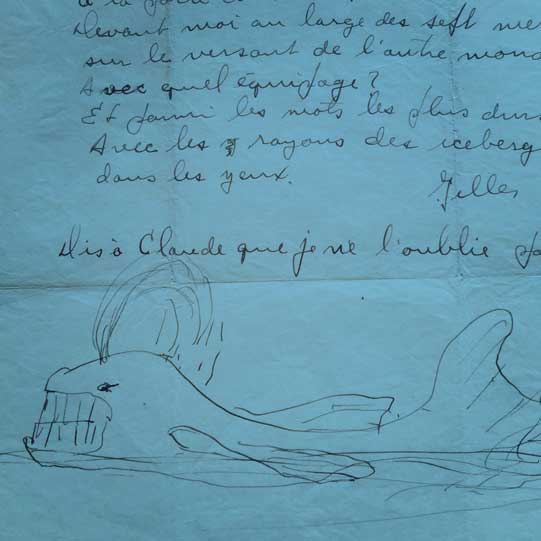 à la
Devant moi au large des sept mer
sur le versant de l'autre mond
Avec quel équipage ?
Et parmi les mots les plus durs
Avec les rayons des iceberg
dans les yeux.
Gilles
Dis à Claude que je ne l'oublie pa